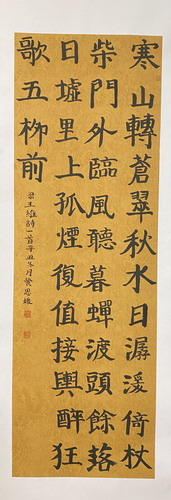 寒山轉蒼翠秋水日潺湲倚杖
柴門外臨風聽暮蟬渡頭餘落
日墟里上孤煙復值接輿醉狂
歌五柳前
王維詩一首辛丑冬月黄